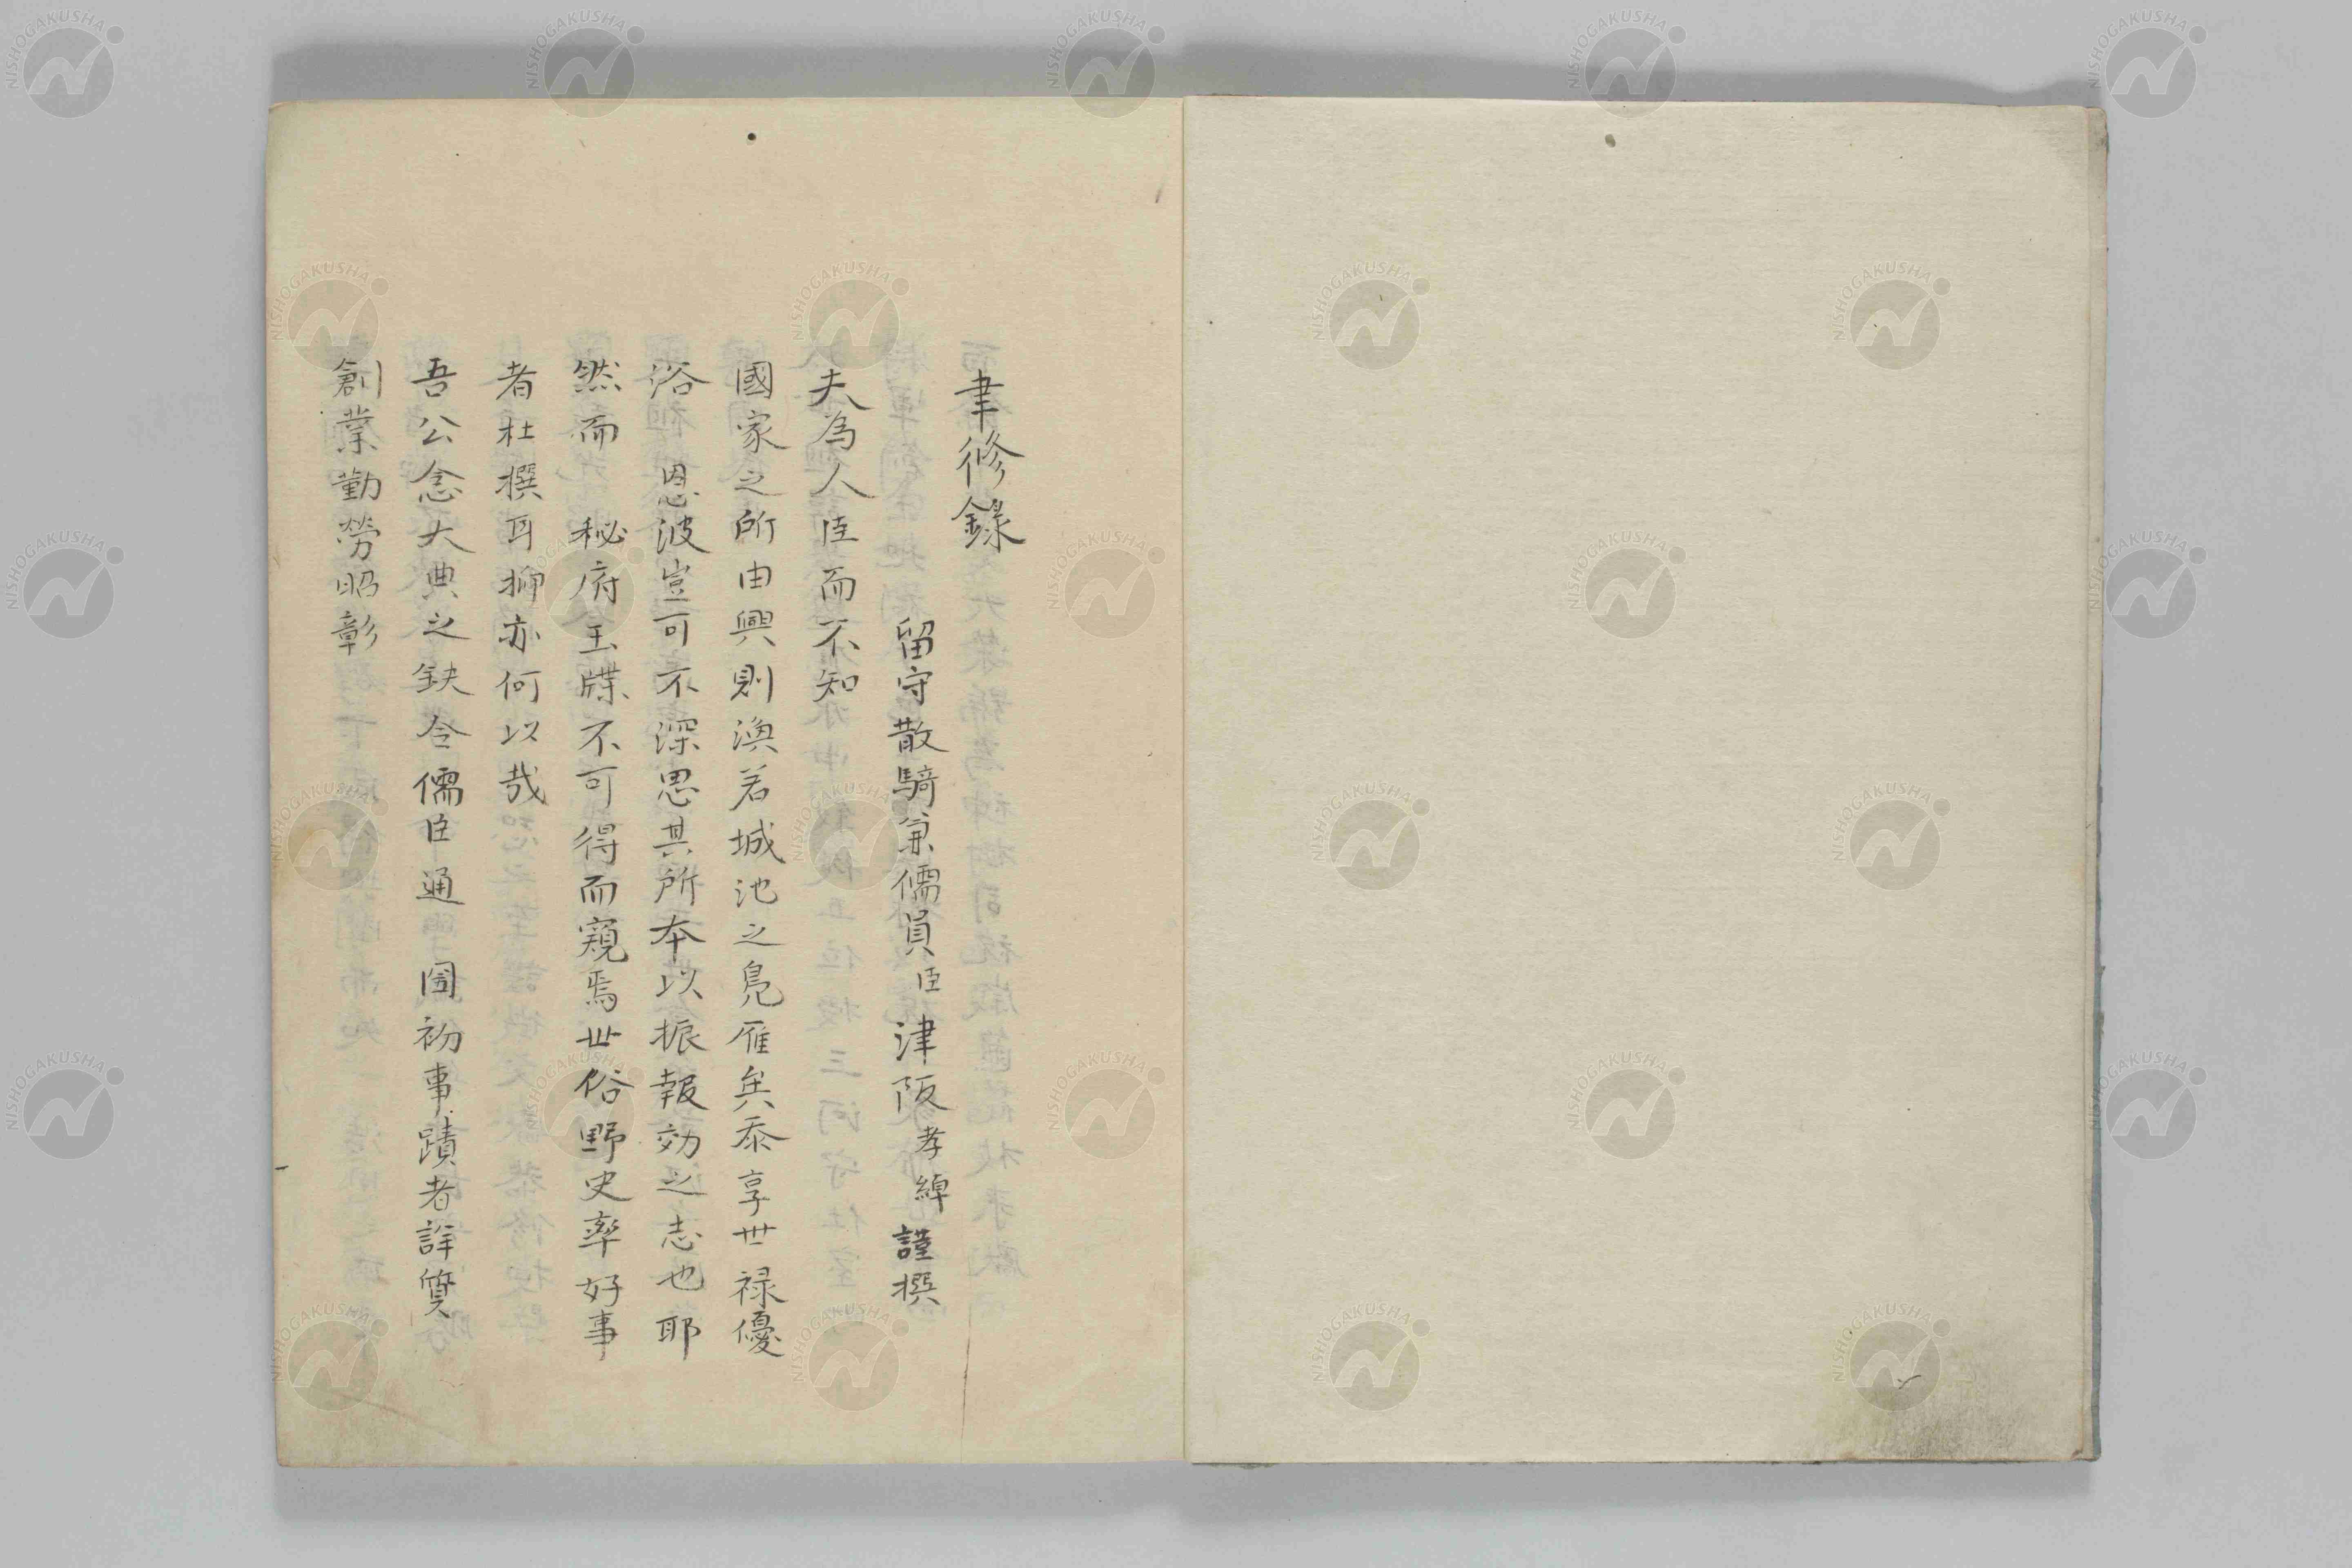 聿修錄
留守散騎兼儒員臣津阪孝綽謹撰
夫為人臣而不知
國家之所由興則渙若城池之鳧雁矣忝享世禄優
浴 恩波豈可不深思其所本以振報効之志也耶
然而 秘府玉牒不可得而窺焉世俗野史率好事
者杜撰耳抑亦何以哉
吾公念大典之缺令儒臣通 國初事蹟者詳質
創業勤勞昭彰